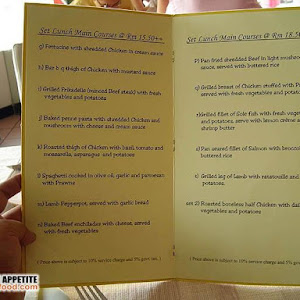 Set Lunch Main Courses @ Rm 15.50++
g) Fettucine with shredded Chicken in cream sauce
h) Bar b q thigh of Chicken with mustard sauce
i) Grilled Frikadella (minced Beef steak) with fresh
vegetables and potatoes
j) Baked penne pasta with shredded Chicken and
mushrooms with cheese and cream sauce
k) Roasted thigh of Chicken with basil, tomato and
mozzarella, asparagus and potatoes
l) Spaghetti cooked in olive oil, garlic and parmesan
with Prawns
m) Lamb Pepperpot, served with garlic bread
n) Baked Beef enchiladas with cheese, served
with fresh vegetables
( Prices above is subject to 10% service charge and 5% govt tax )
Set Lunch Main Courses @ Rm 18.50
p) Pan fried shredded Beef in light mushroom
sauce, served with buttered rice
Grilled breast of Chicken stuffed with
served with fresh vegetables and
potatoes
Grilled fillet of Sole fish with fresh
vegetables, serve with lemon crème and
shrimp butter
Pan seared fillet of Salmon with broccoli
buttered rice
Grilled leg of Lamb with ratatouille and
potatoes
set 2) Roasted boneless half Chicken with
vegetables and potatoes
( Prices above is subject to 10% service charge and 5% govt
APPETITE
food.com